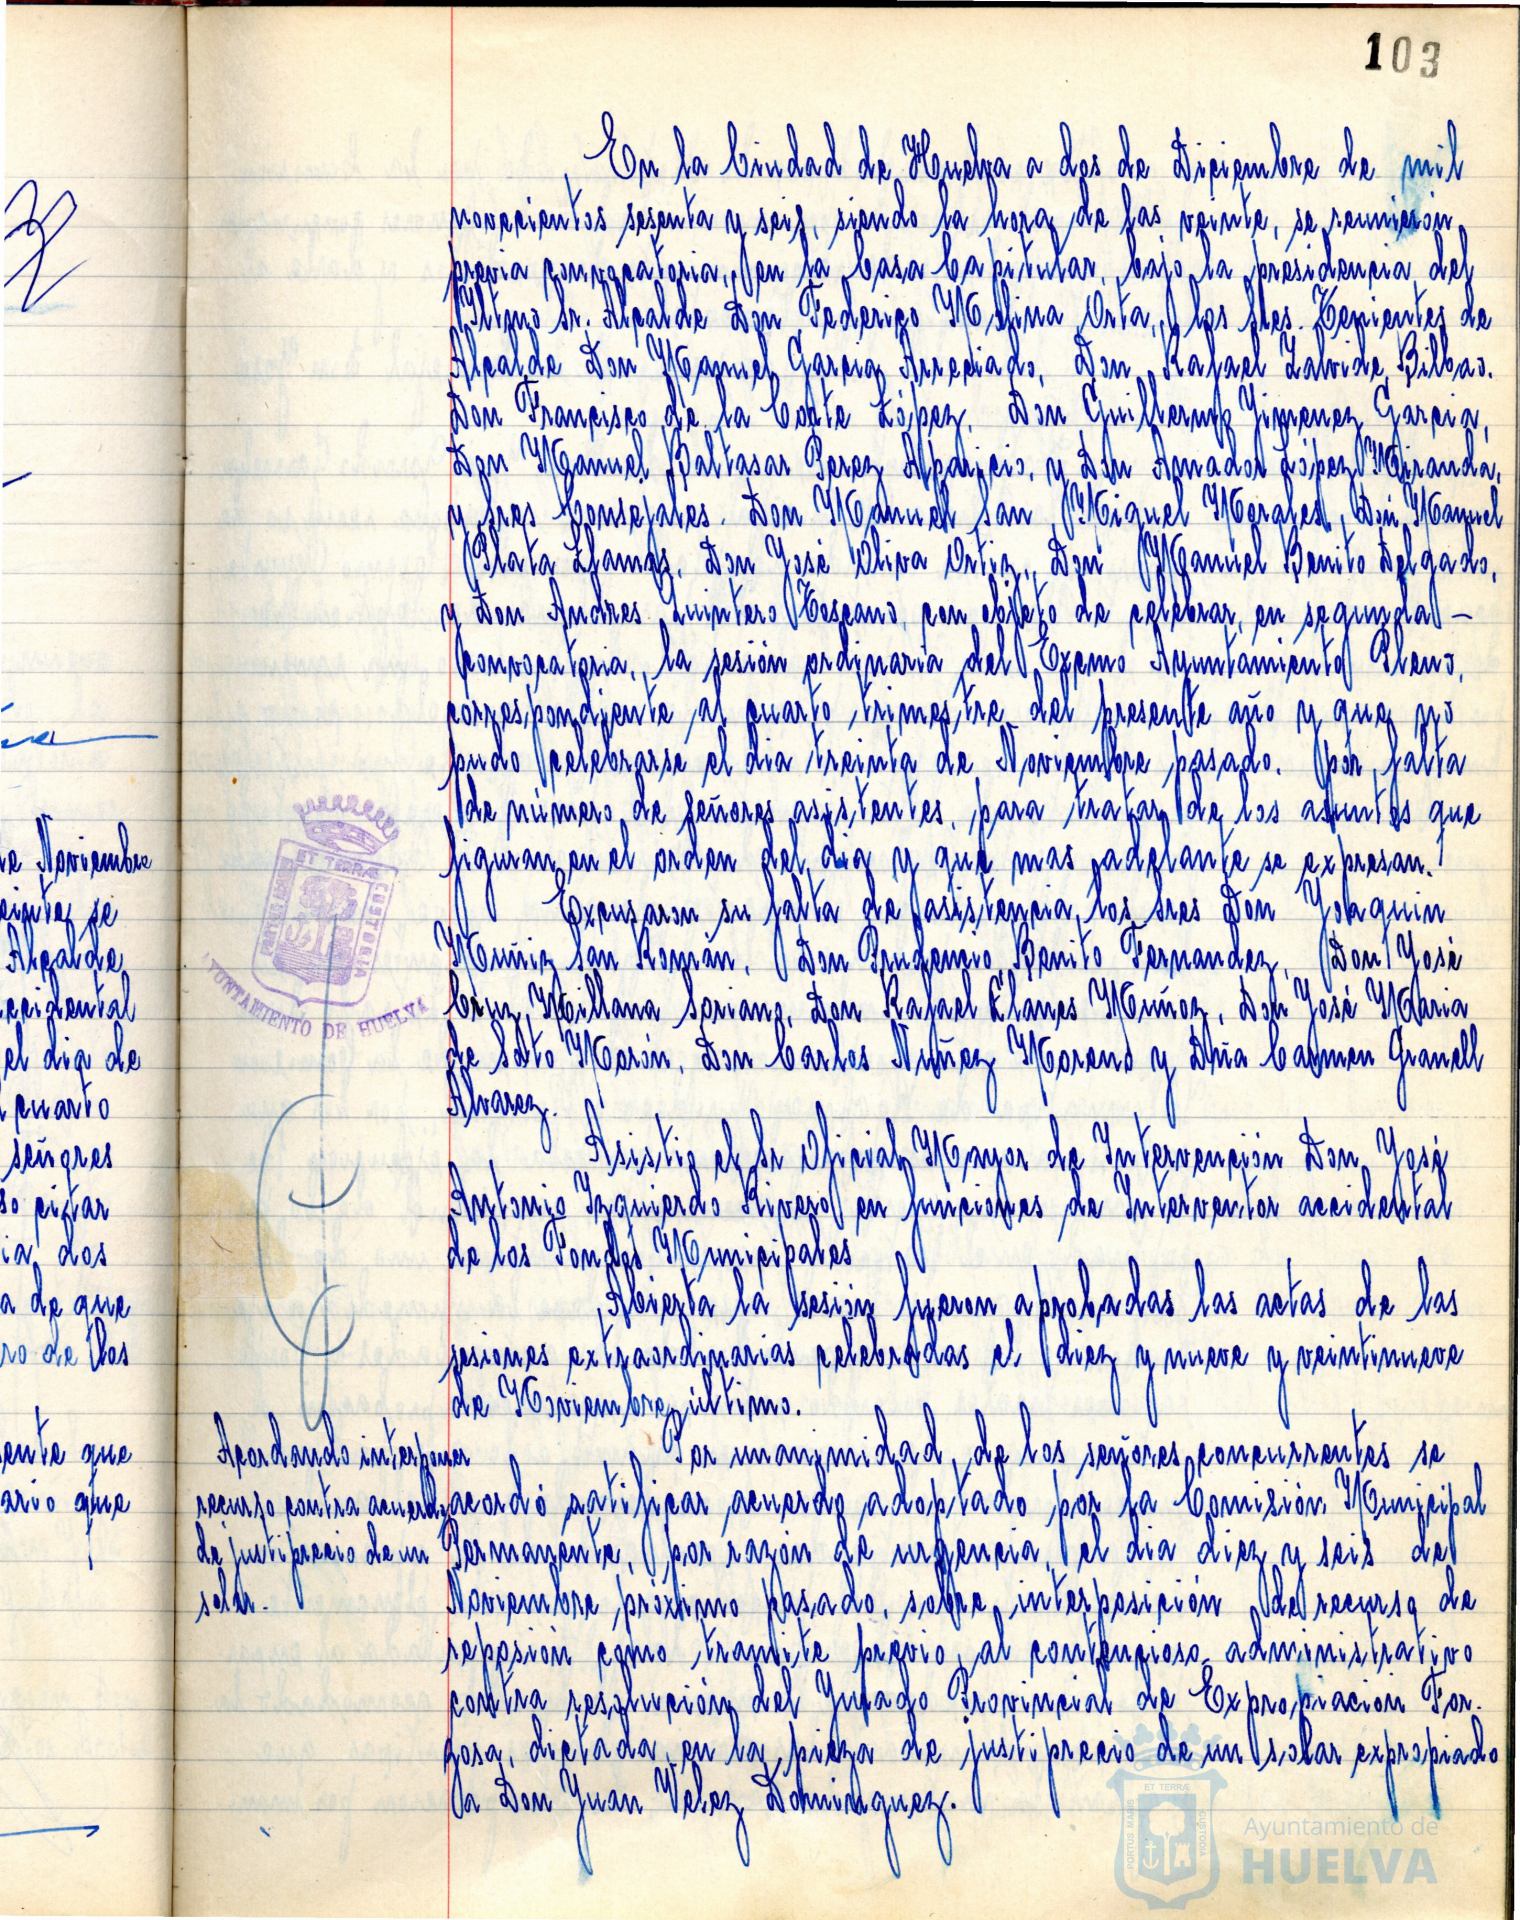 103
En la Ciudad de Huelva a dos de Diciembre de mil
novecientos sesenta y seis, siendo la hora de las veinte, se reunieron
previa convocatoria, en la Casa Capitular, bajo la presidencia del
Iltmo Sr. Alcalde Don Federico Molina Orta, los Sres. Tenientes de
Alcalde Don Manuel Garcia Arreciado, Don Rafael Zalvide Bilbao.
Don Francisco de la Corte López, Don Guillermo Jimenez Garcia,
Don Manuel Baltasar Perez Aparicio, y Don Amador López Miranda,
y Sres Consejales. Don Manuel San Miguel Morales, Don Manuel
Plata Llamas, Don José Oliva Ortiz, Don Manuel Benito Delgado,
y Don Andres Quintero Toscano, con objeto de celebrar, en segunda —
convocatoria, la sesión ordinaria del Excmo Ayuntamiento Pleno,
correspondiente al cuarto trimestre del presente año y que no
pudo celebrarse el dia treinta de Noviembre pasado. por falta
de número de señores asistentes, para tratar de los asuntos que
figuran en el orden del dia y que mas adelante se expresan.
Excusaron su falta de asistencia, los Sres Don Joaquin
Muñiz San Román, Don Prudencio Benito Fernandez, Don José
Cruz Millana Soriano, Don Rafael Llanes Muñoz, Don José Maria
de Soto Morón, Don Carlos Nuñez Moreno y Dña Carmen Granell
Alvarez.
Asistio el Sr Oficial Mayor de Intervención Don José
Antonio Izquierdo Rivero en funciones de Interventor accidental
de los Fondos Municipales
Abierta la sesión fueron aprobadas las actas de las
sesiones extraordinarias celebradas el diez y nueve y veintinueve
de Noviembre último.
Acordando interponer
recurso contra acuerdo
de justiprecio de un
solar.
Por unanimidad de los señores concurrentes se
acordó ratificar acuerdo adoptado por la Comisión Municipal
Permanente, por razón de urgencia, el dia diez y seis de
Noviembre próximo pasado, sobre interposición de recurso de
reposión como tramite previo al contencioso-administrativo
contra resolución del Jurado Provincial de Expropiación For-
zosa, dictada en la pieza de justiprecio de un solar expropiado
a Don Juan Velez Dominguez.
e Noviembre
se
Alcalde
accidental
el dia de
cuarto
señores
citar
dos
a de que
ro de los
ente que
ario que
PORTUS MARIS
ET TERRÆ
CUSTODIA
AYUNTAMIENTO DE HUELVA
PORTUS MARIS
ET TERRÆ
CUSTODIA
Ayuntamiento de
HUELVA